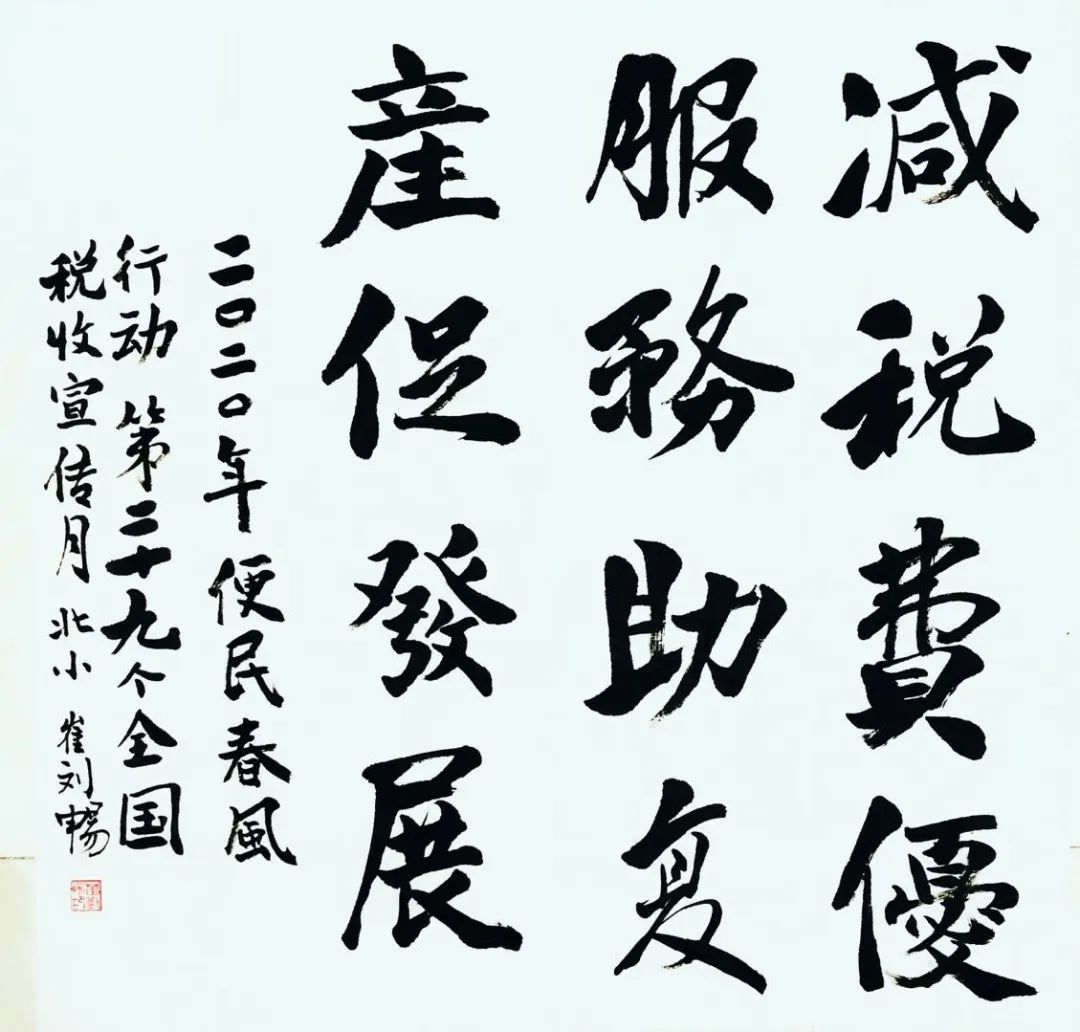 减税費優
服務助复
産促發展
二〇二〇年便民春風
行动 第二十九个全国
税收宣传月 北小 崔刘暢